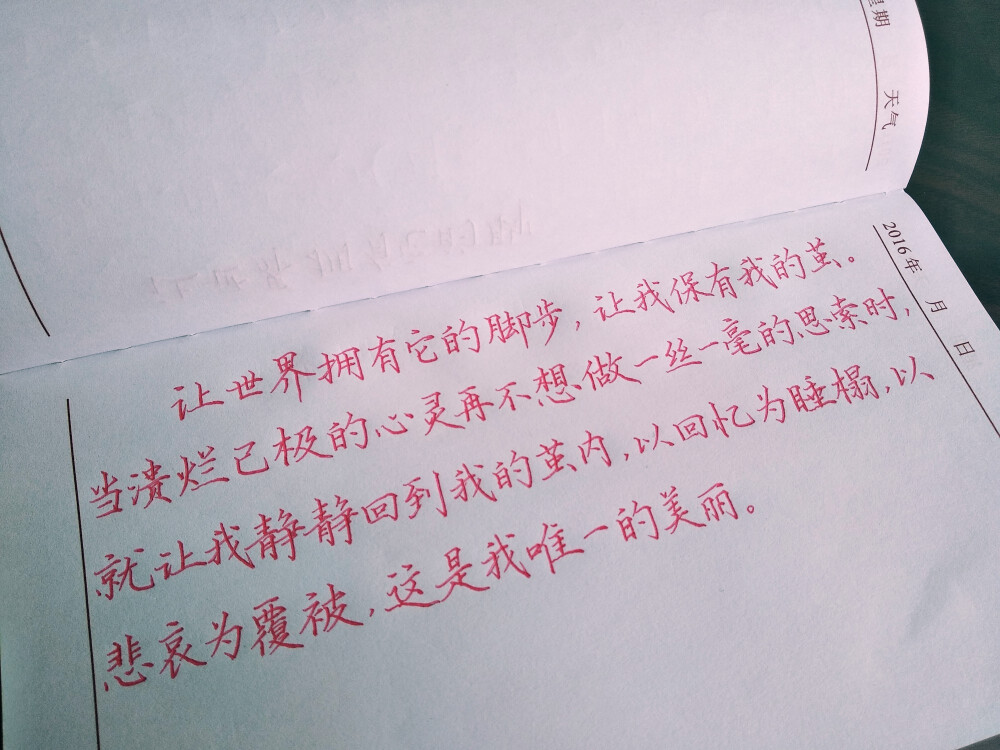 星期
天气
2016年 月 日
让世界拥有它的脚步,让我保有我的茧。
当溃烂已极的心灵再不想做一丝一毫的思索时,
就让我静静回到我的茧内,以回忆为睡榻,以
悲哀为覆被,这是我唯一的美丽。